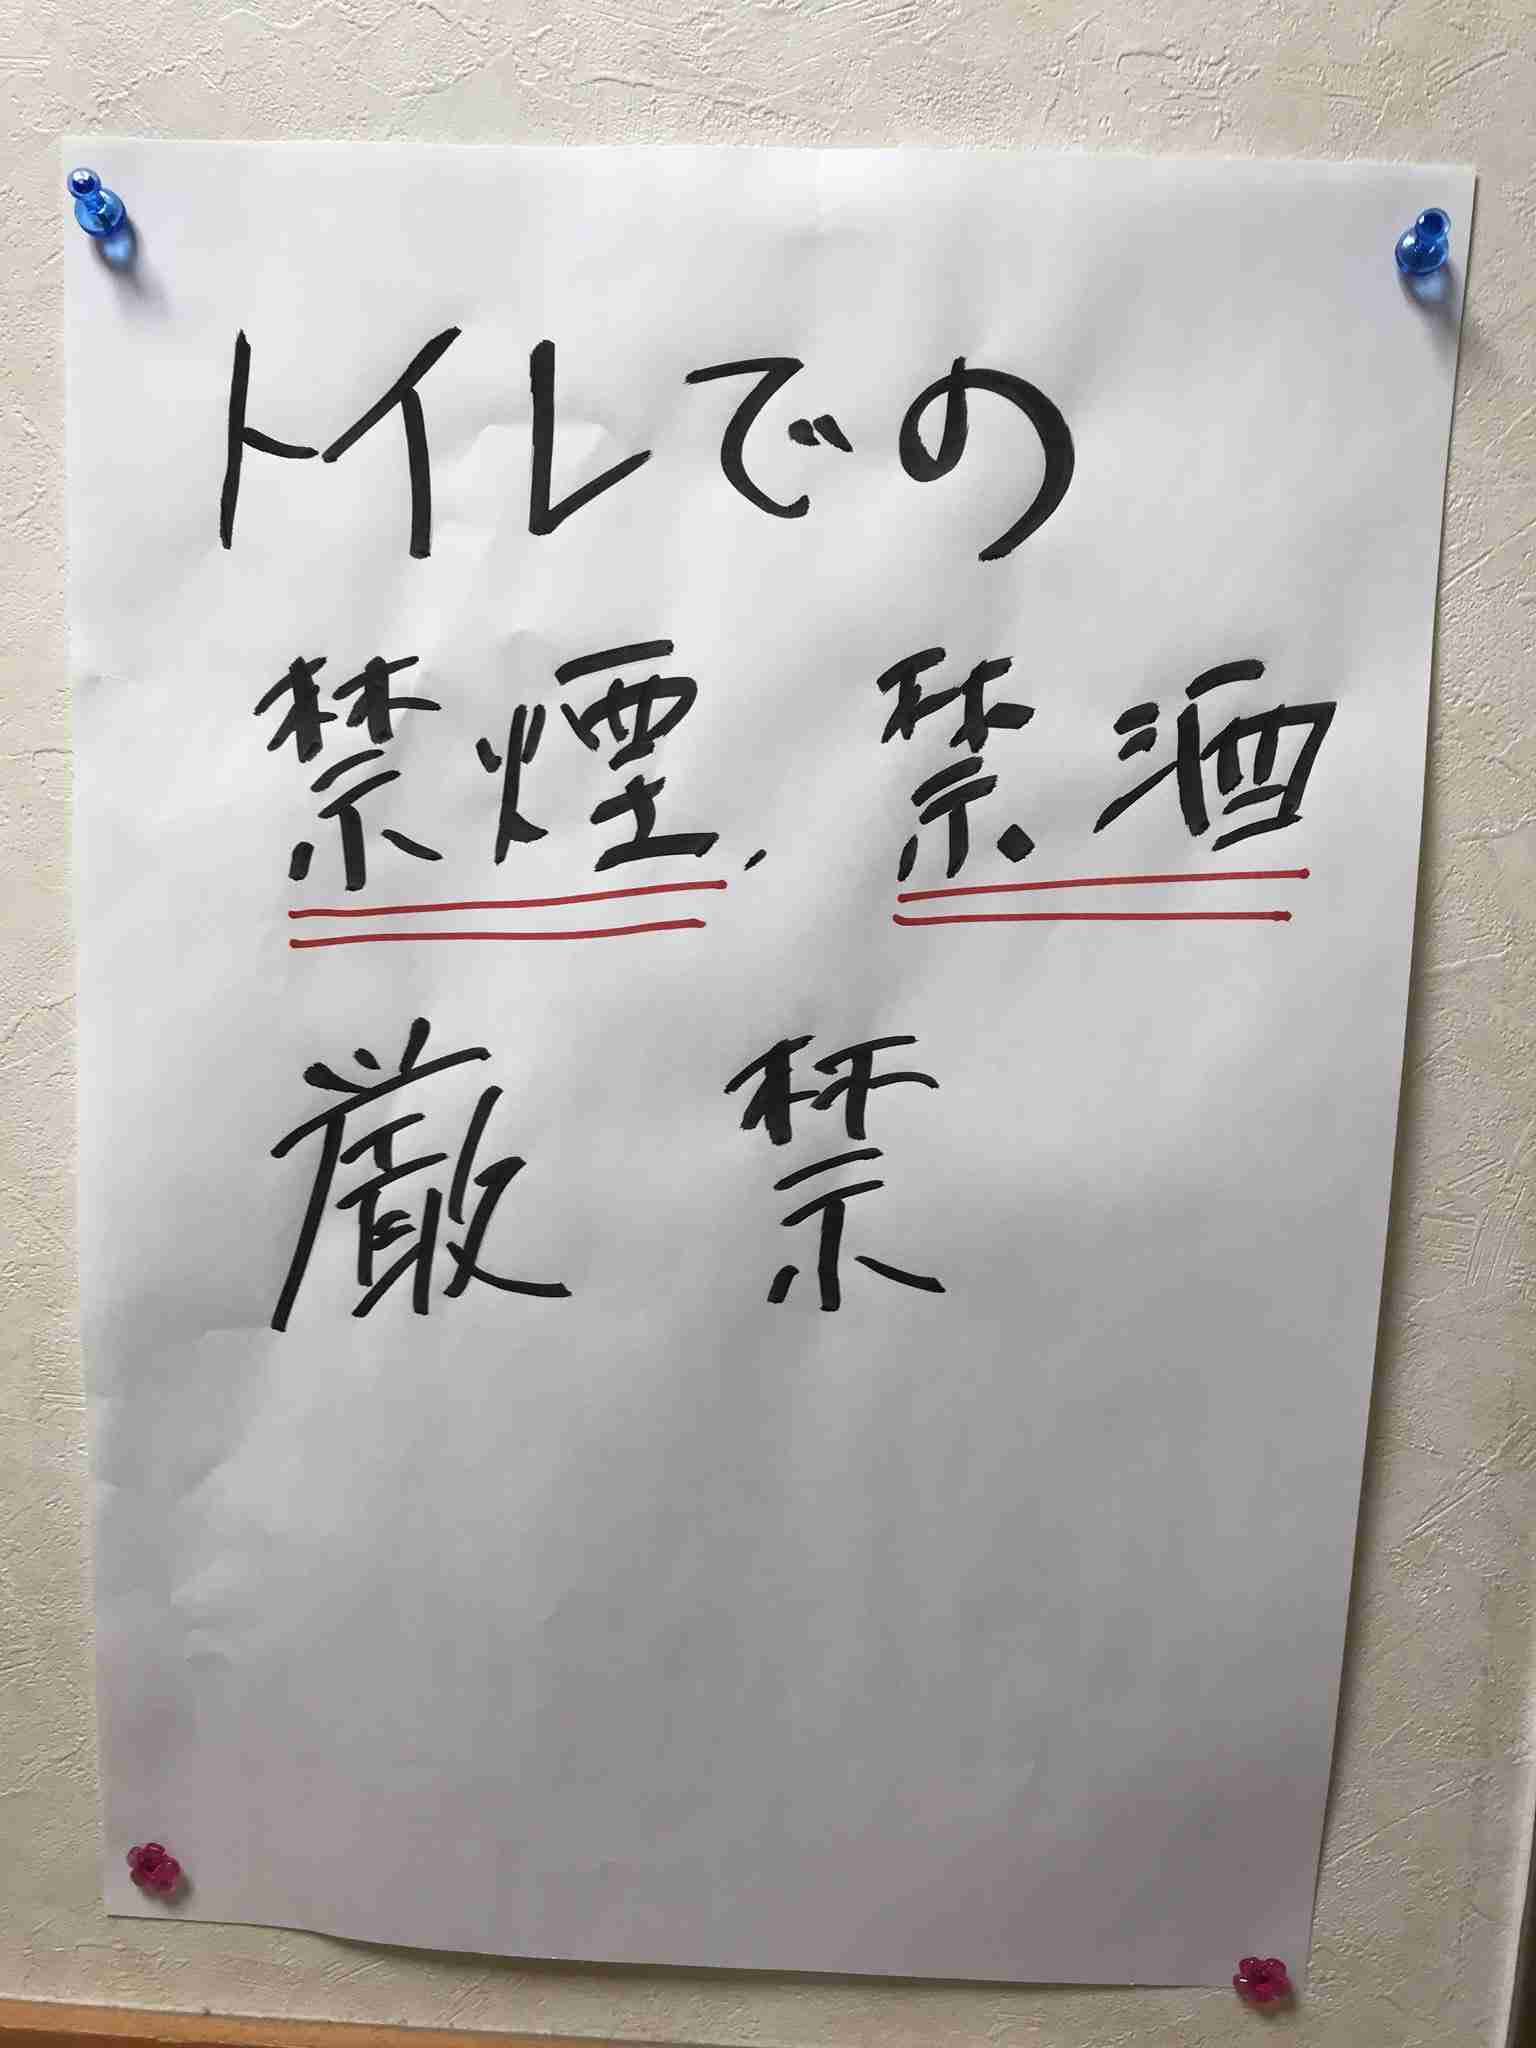 トイレでの
禁煙、禁酒
厳禁